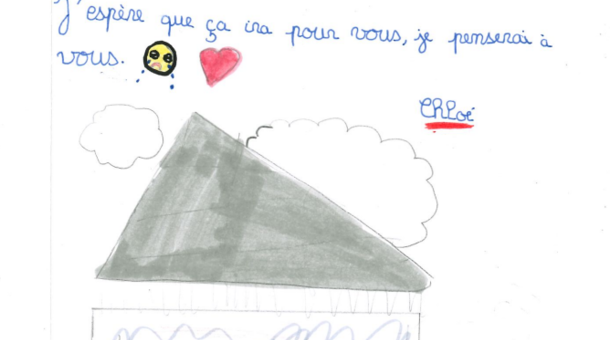 J'espère que ça ira pour vous, je penserai à
vous.
Chloé